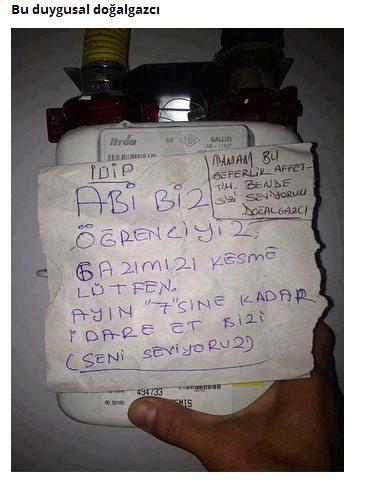 Bu duygusal doğalgazcı
Itrón
G4
GALLUS
ABİ BİZ
ÖĞRENCİYİZ,
GAZIMIZI KESME
LÜTFEN.
AYIN "7"SİNE KADAR
İDARE ET BİZİ
(SENİ SEVİYORUZ)
TAMAM BU
SEFERLİK AFFET-
TİM. BENDE
SİZİ SEVİYORUM
DOĞALGAZCI
494733
AD SOYAD